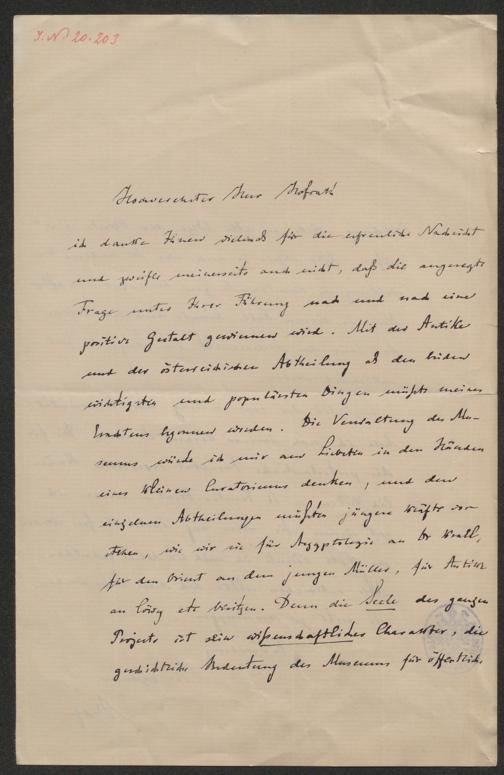 I. N. 20.203
Hochverehrter Herr Hofrath
ich danke Ihnen vielmals für die erfreuliche Nachricht
und zweifle meinerseits auch nicht, daß die angeregte
Frage unter Ihrer Führung nach und nach eine
positive Gestalt gewinnen wird. Mit der Antike
und der österreichischen Abtheilung als den beiden
wichtigsten und populärsten Dingen müßte meines
Erachtens begonnen werden. Die Verwaltung des Mu-
seums würde ich mir am Liebsten in den Händen
eines kleinen Curatoriums denken, und den
einzelnen Abtheilungen müßten jüngere Kräfte vor-
stehen, wie wir sie für Aegyptologie an Dr Krall,
für den Orient an dem jungen Müller, für Antike
an Löwy etc besitzen. Denn die Seele des ganzen
Projects ist sein wissenschaftlicher Charakter, die
geschichtliche Bedeutung des Museums für öffentliche